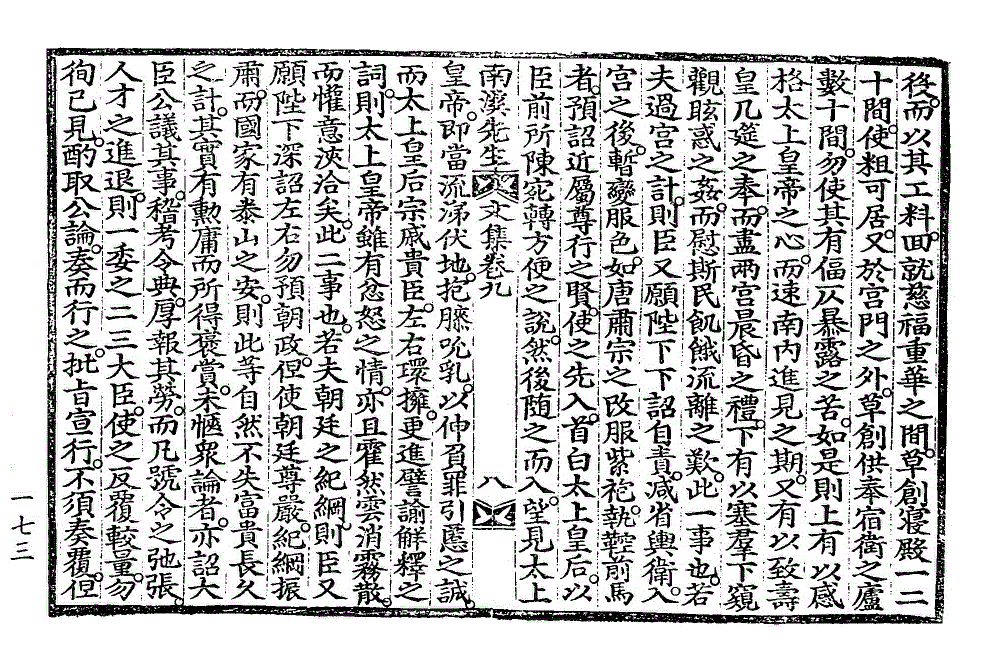 後。而以其工料。回就慈福重華之間。草創寢殿一二
十間。使粗可居。又於宮門之外。草創供奉宿衛之廬
數十間。勿使其有偪仄暴露之苦。如是則上有以感
格太上皇帝之心。而速南內進見之期。又有以致壽
皇几筵之奉。而盡兩宮晨昏之禮。下有以塞羣下窺
觀眩惑之姦。而慰斯民飢餓流離之歎。此一事也。若
夫過宮之計。則臣又願陛下下詔自責。減省輿衛。入
宮之後。暫變服色。如唐肅宗之改服紫袍。執鞚前馬
者。預詔近屬尊行之賢。使之先入。首白太上皇后。以
臣前所陳宛轉方便之說。然後隨之而入。望見太上
南溪先生文集卷九 八
皇帝。即當流涕伏地。抱膝吮乳。以伸負罪引慝之誠。
而太上皇后宗戚貴臣。左右環擁。更進譬諭解釋之
詞。則太上皇帝雖有忿怒之情。亦且霍然雲消霧散。
而懽意浹洽矣。此二事也。若夫朝廷之紀綱。則臣又
願陛下深詔左右勿預朝政。但使朝廷尊嚴。紀綱振
肅。而國家有泰山之安。則此等自然不失富貴長久
之計。其實有勳庸而所得褒賞。未愜衆論者。亦詔大
臣公議其事。稽考令典。厚報其勞。而凡號令之弛張。
人才之進退。則一委之二三大臣。使之反覆較量。勿
徇已見。酌取公論。奏而行之。批旨宣行。不須奏覆。但
一七三